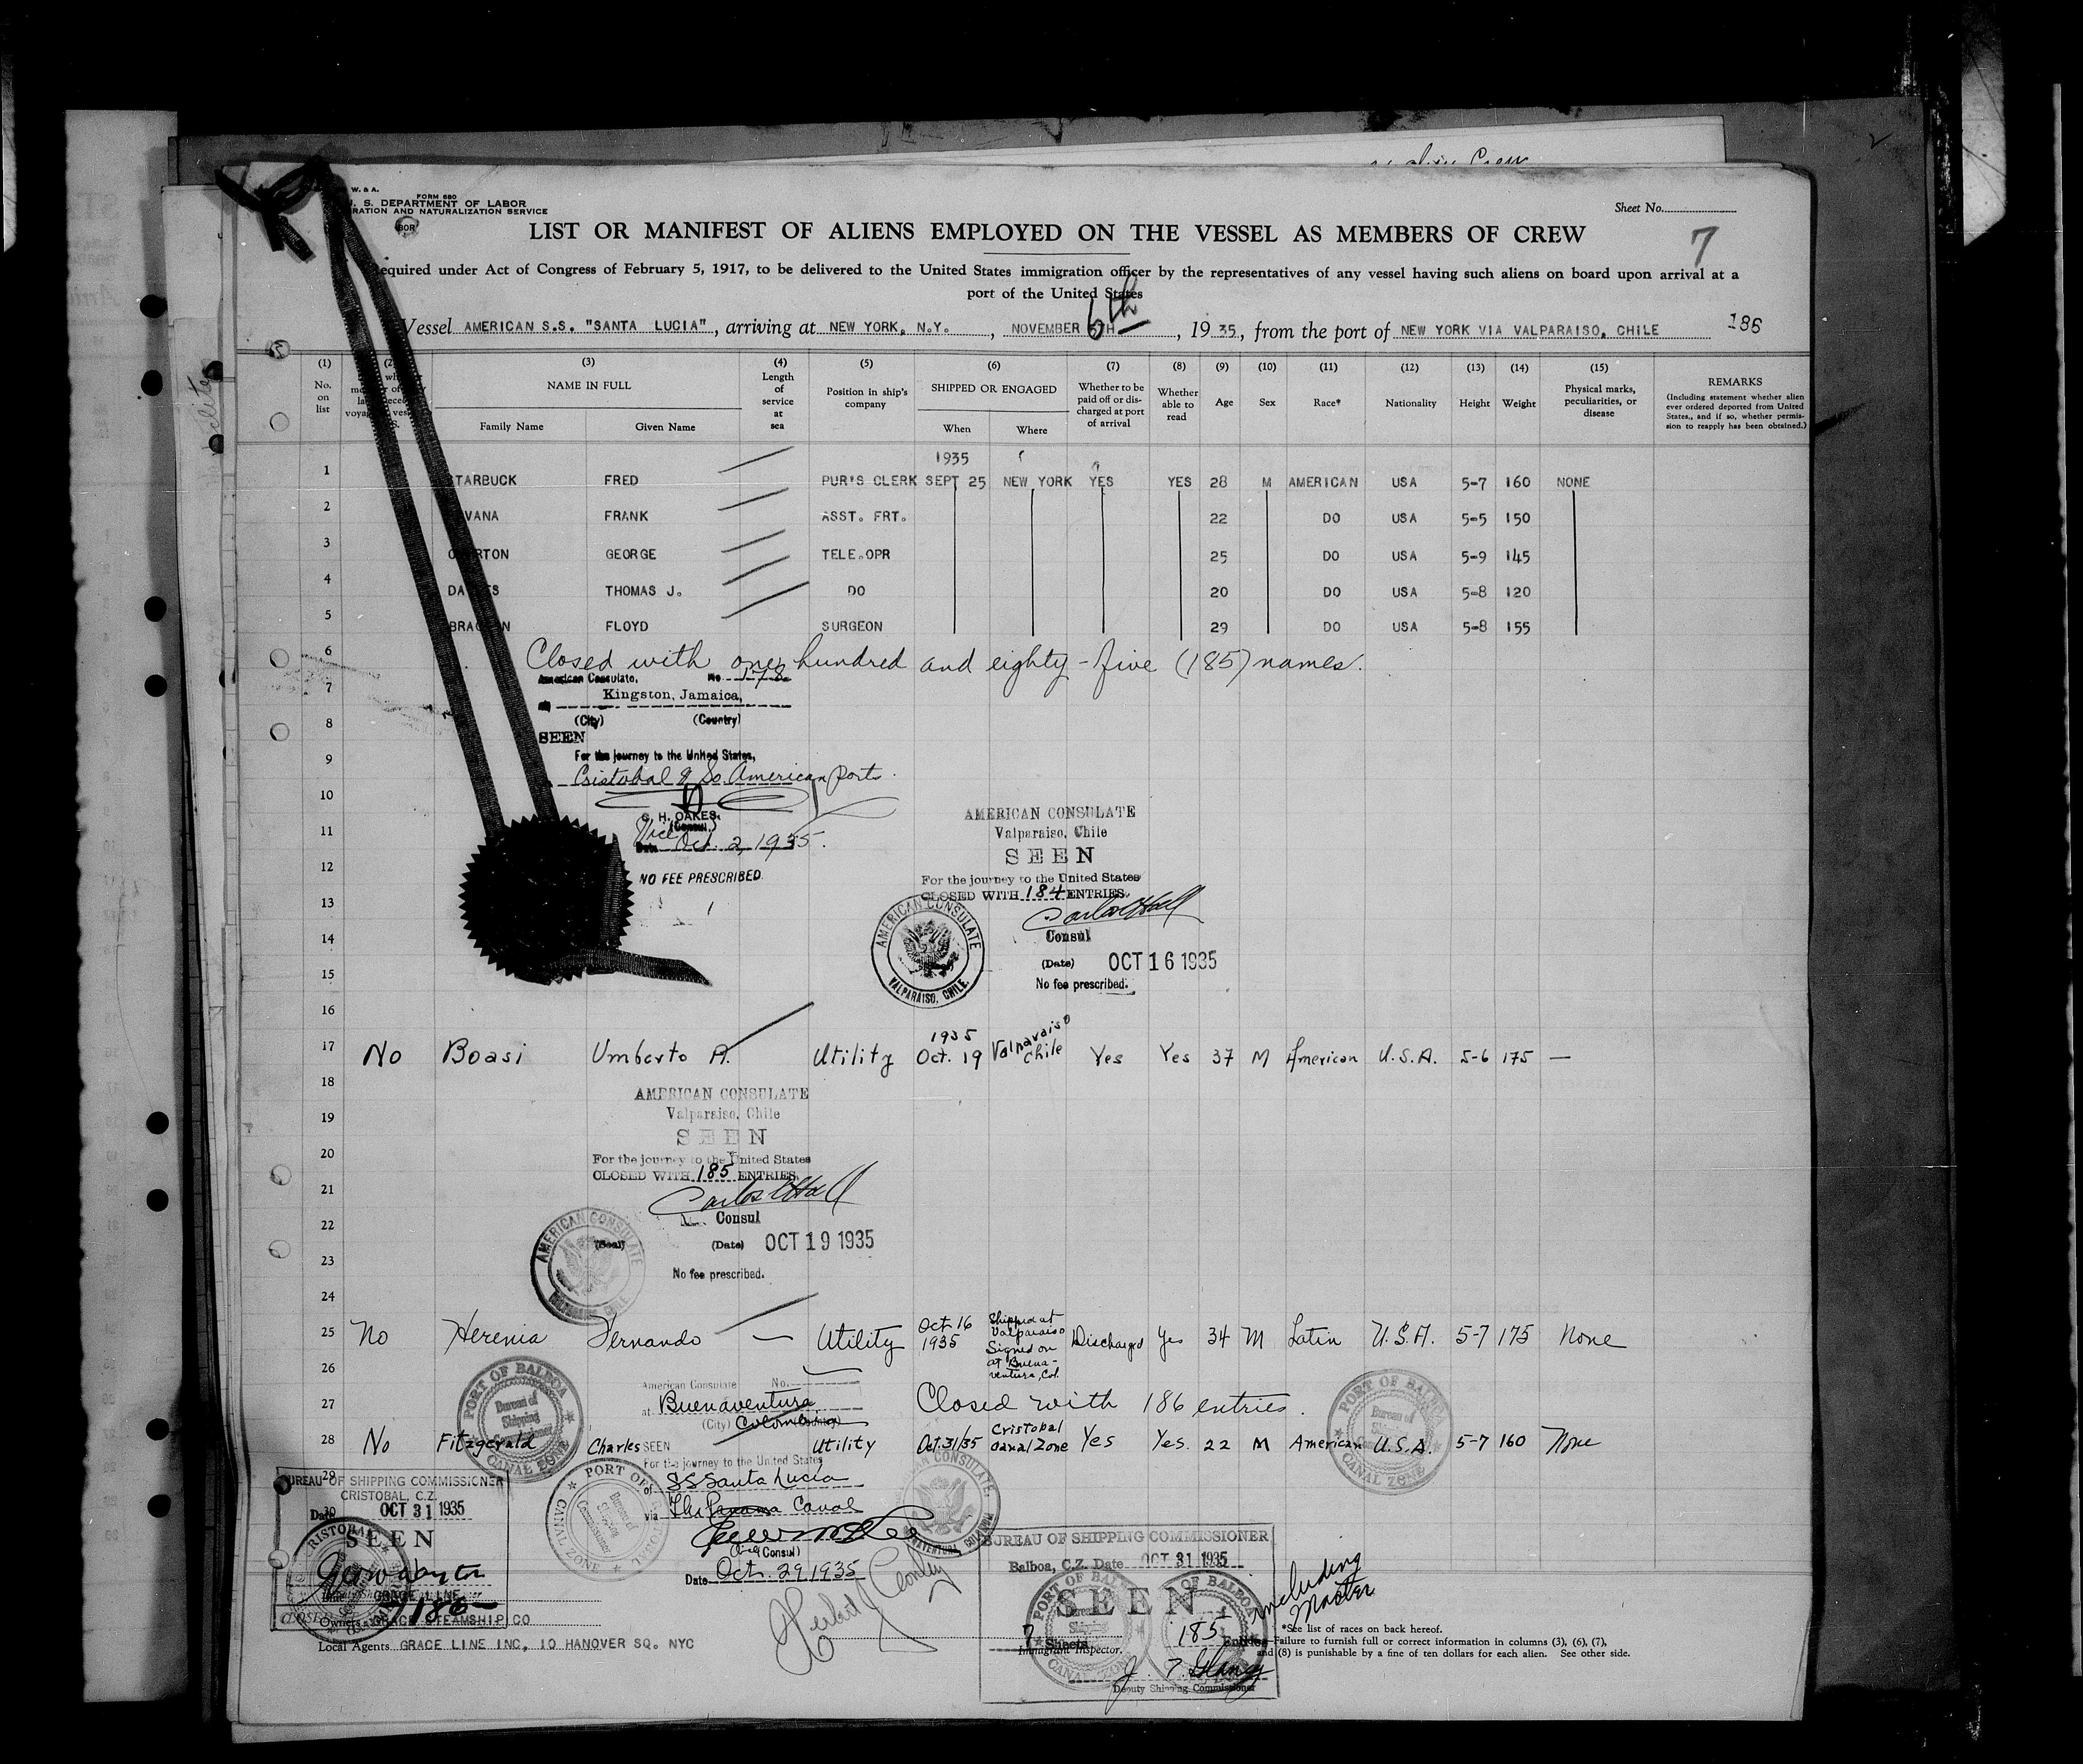 W. & A.
FORM 680
S. DEPARTMENT OF LABOR
RATION AND NATURALIZATION SERVICE
Sheet No.
7
LIST OR MANIFEST OF ALIENS EMPLOYED ON THE VESSEL AS MEMBERS OF CREW
equired under Act of Congress of February 5, 1917, to be delivered to the United States immigration officer by the representatives of any vessel having such aliens on board upon arrival at a
port of the United States
Vessel AMERICAN S.S. "SANTA LUCIA", arriving at NEW YORK, N.Y., NOVEMBER 6th, 1935, from the port of NEW YORK VIA VALPARAISO, CHILE 186
(1) No. on list (3) NAME IN FULL Family Name Given Name (4) Length of service at sea (5) Position in ship's company (6) SHIPPED OR ENGAGED When Where (7) Whether to be paid off or discharged at port of arrival (8) Whether able to read (9) Age (10) Sex (11) Race* (12) Nationality (13) Height (14) Weight (15) Physical marks, peculiarities, or disease REMARKS (Including statement whether alien ever ordered deported from United States, and if so, whether permission to reapply has been obtained.)
1935
1 TARBUCK FRED PUR'S CLERK SEPT 25 NEW YORK YES YES 28 M AMERICAN USA 5-7 160 NONE
2 VANA FRANK ASST. FRT. 22 DO USA 5-5 150
3 RTON GEORGE TELE.OPR 25 DO USA 5-9 145
4 DA S THOMAS J. DO 20 DO USA 5-8 120
5 BRA N FLOYD SURGEON 29 DO USA 5-8 155
6 Closed with one hundred and eighty-five (185) names.
American Consulate, No. 178
7 Kingston, Jamaica,
8 (City) (Country)
SEEN
9 For the journey to the United States,
Cristobal & So. American Ports.
10
C. H. OAKES.
11 Vice (Consul)
Date Oct. 2, 1935.
12 NO FEE PRESCRIBED.
AMERICAN CONSULATE
Valparaiso, Chile
SEEN
For the journey to the United States
CLOSED WITH 184 ENTRIES.
13
Consul
14 (Date) OCT 16 1935
No fee prescribed.
AMERICAN CONSULATE
VALPARAISO, CHILE.
15
16
17 No Boasi Umberto A. Utility 1935 Oct. 19 Valparaiso Chile Yes Yes 37 M American U.S.A. 5-6 175 —
18 AMERICAN CONSULATE
19 Valparaiso, Chile
SEEN
20 For the journey to the United States
CLOSED WITH 185 ENTRIES.
21
22 Consul
(Seal) (Date) OCT 19 1935
23 No fee prescribed.
AMERICAN CONSULATE
24
25 No Herenia Fernando — Utility Oct 16 1935 Shipped at Valparaiso Signed on at Buenaventura, Col. Discharged Yes 34 M Latin U.S.A. 5-7 175 None
26 American Consulate No.
27 at Buenaventura Closed with 186 entries.
(City) Colombia
28 No Fitzgerald Charles Utility Oct. 31/35 Cristobal Canal Zone Yes Yes. 22 M American U.S.A. 5-7 160 None
SEEN
For the journey to the United States
PORT OF BALBOA
Bureau of Shipping Commissioner
CANAL ZONE
29
of SS Santa Lucia
30
via The Panama Canal
(Vice Consul)
Date Oct. 29 1935
BUREAU OF SHIPPING COMMISSIONER
CRISTOBAL, C.Z.
Date OCT 31 1935
SEEN
186
GRACE LINE
Owners GRACE STEAMSHIP CO
Local Agents GRACE LINE INC, 10 HANOVER SQ. NYC
BUREAU OF SHIPPING COMMISSIONER
Balboa, C.Z. Date OCT 31 1935
SEEN
7 Sheets 185 Entries
including Master
Immigrant Inspector.
Deputy Shipping Commissioner
*See list of races on back hereof.
Failure to furnish full or correct information in columns (3), (6), (7),
and (8) is punishable by a fine of ten dollars for each alien. See other side.